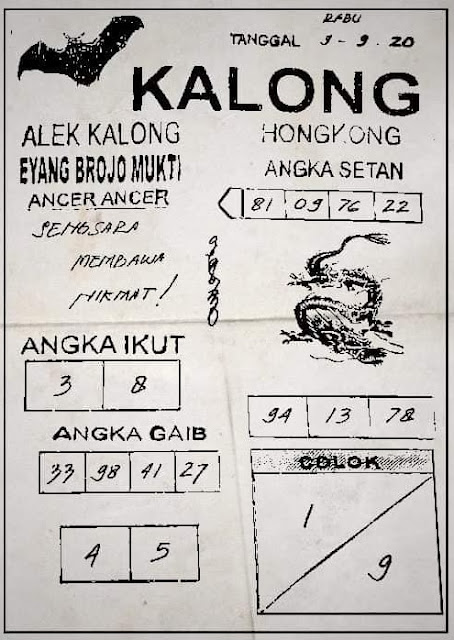 RABU
TANGGAL 9 - 9 . 20
KALONG
ALEK KALONG
EYANG BROJO MUKTI
ANCER ANCER
SENGSARA
MEMBAWA
HIKMAT!
HONGKONG
ANGKA SETAN
81 09 76 22
ANGKA IKUT
3 8
94 13 78
ANGKA GAIB
33 98 41 27
COLOK
1
9
4 5